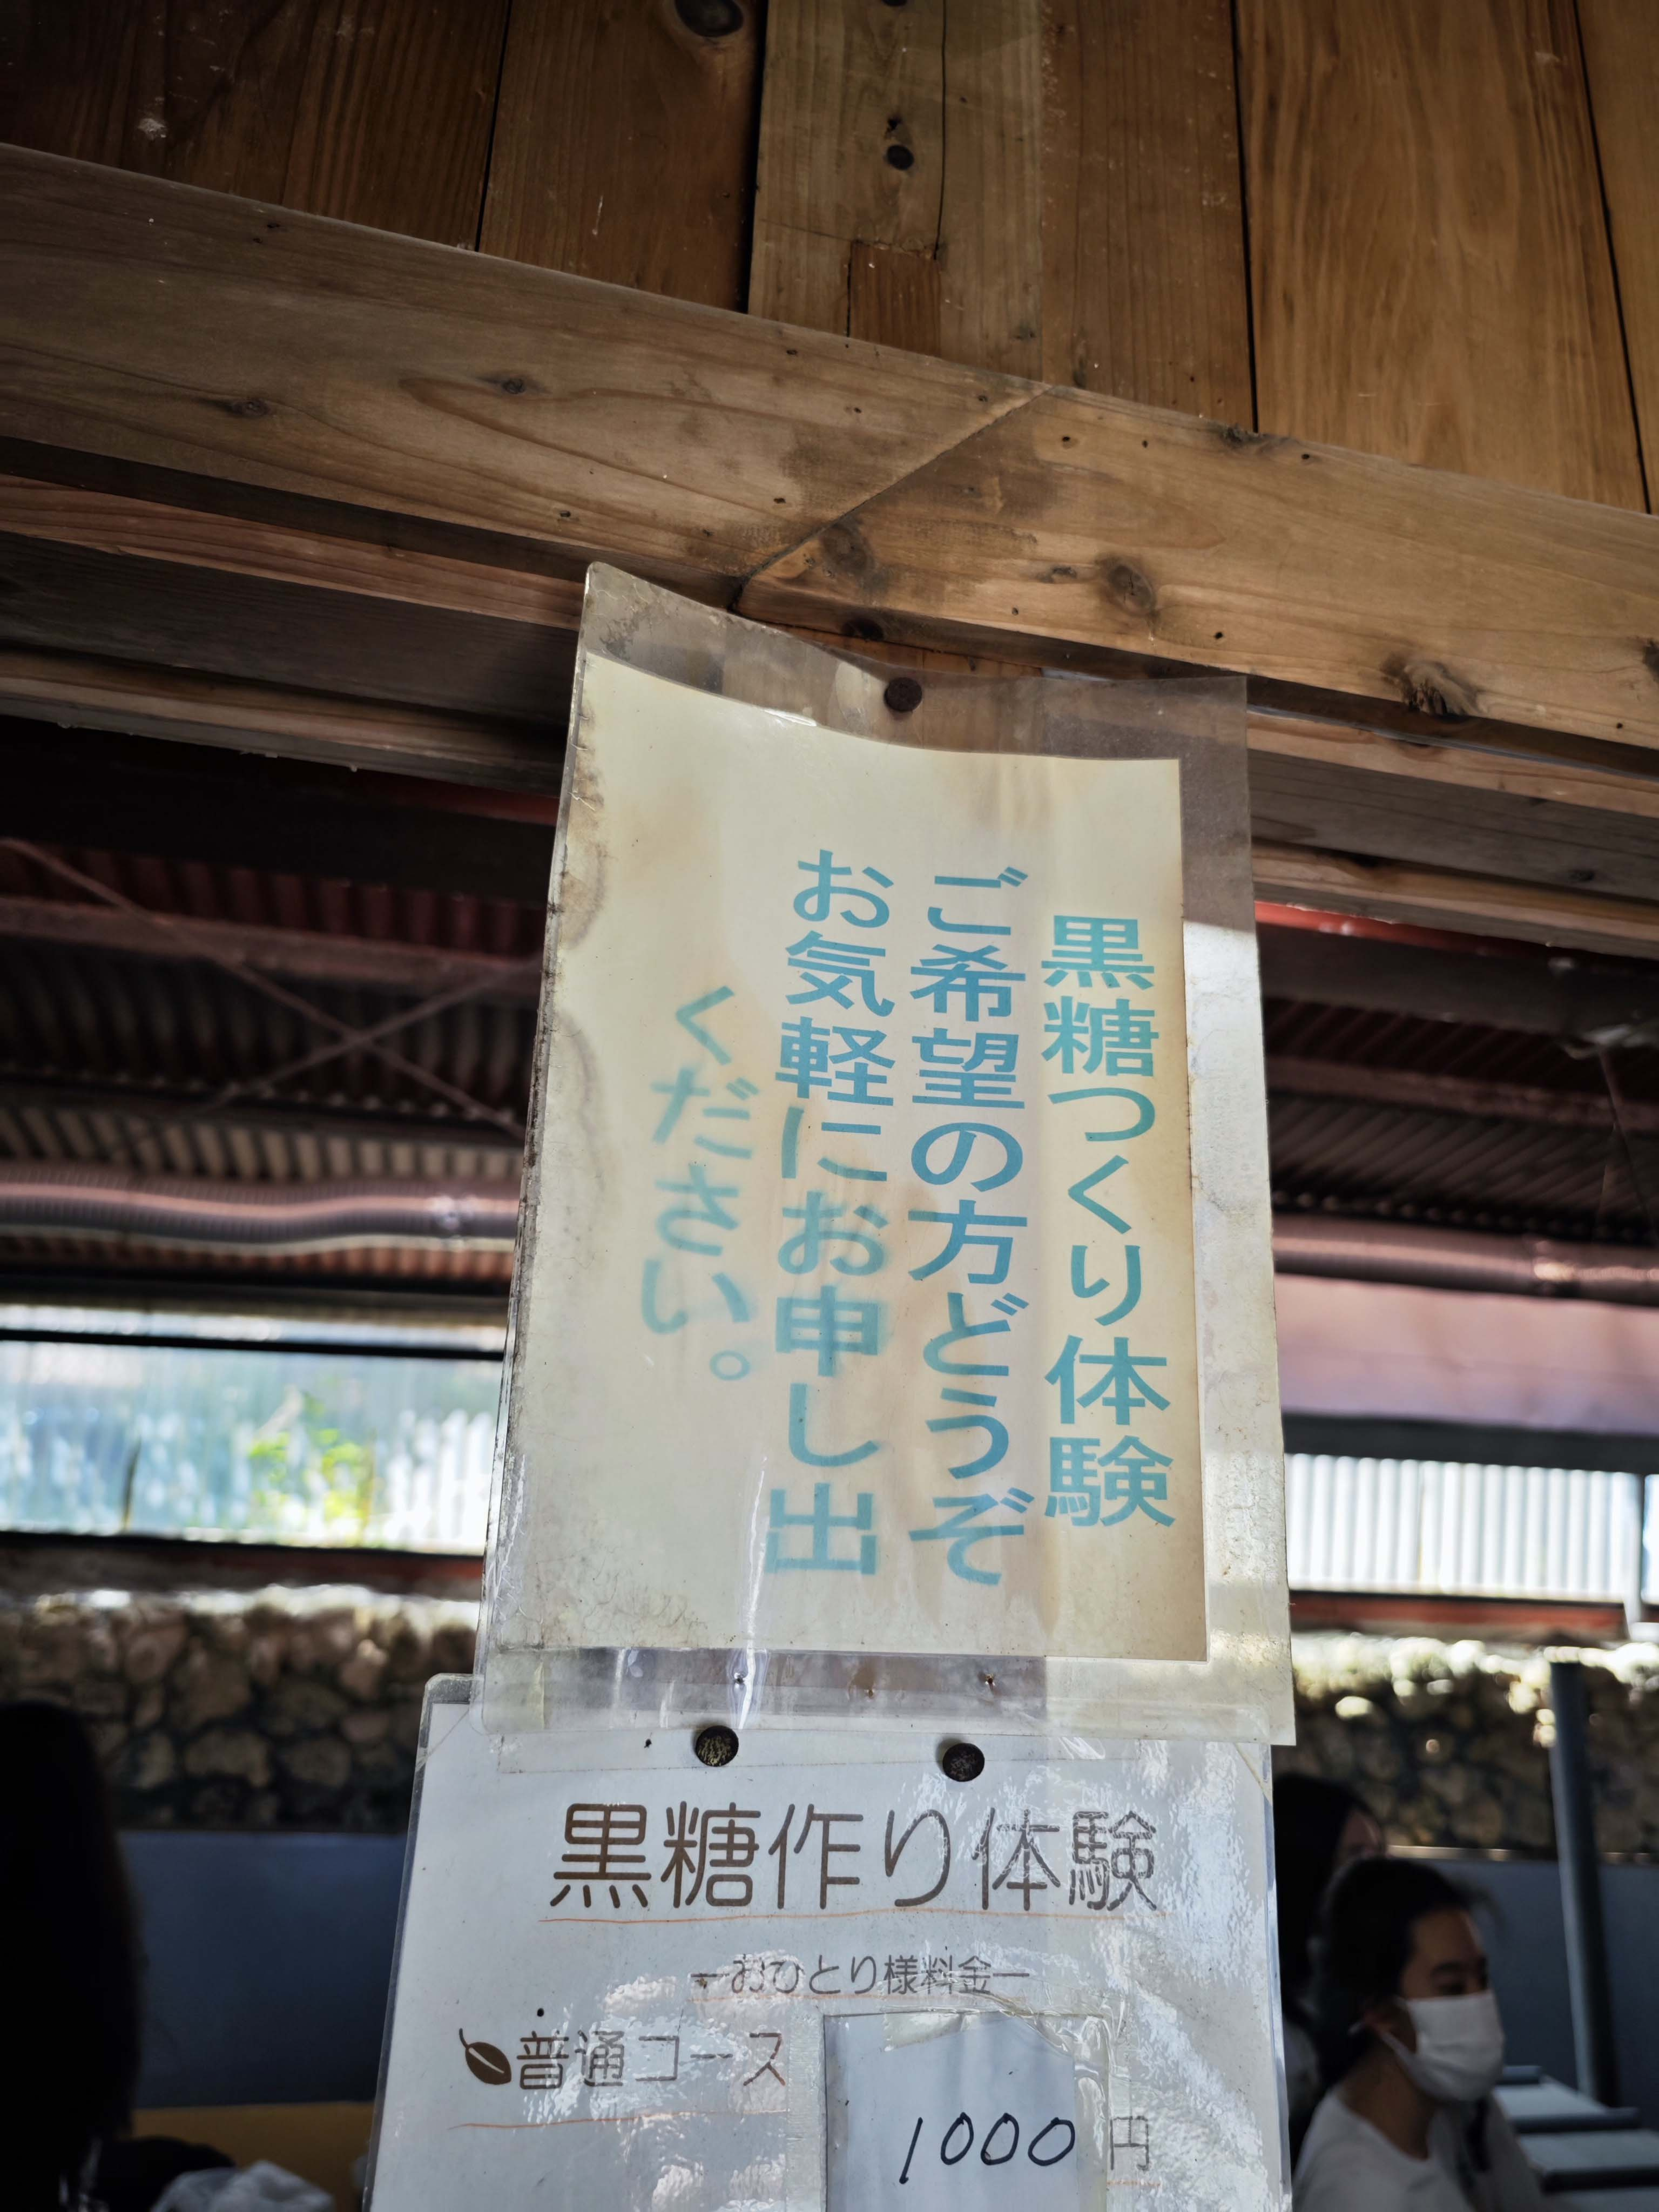 黒糖つくり体験
ご希望の方どうぞ
お気軽にお申し出
ください。
黒糖作り体験
ーおひとり様料金ー
普通コース
1000円